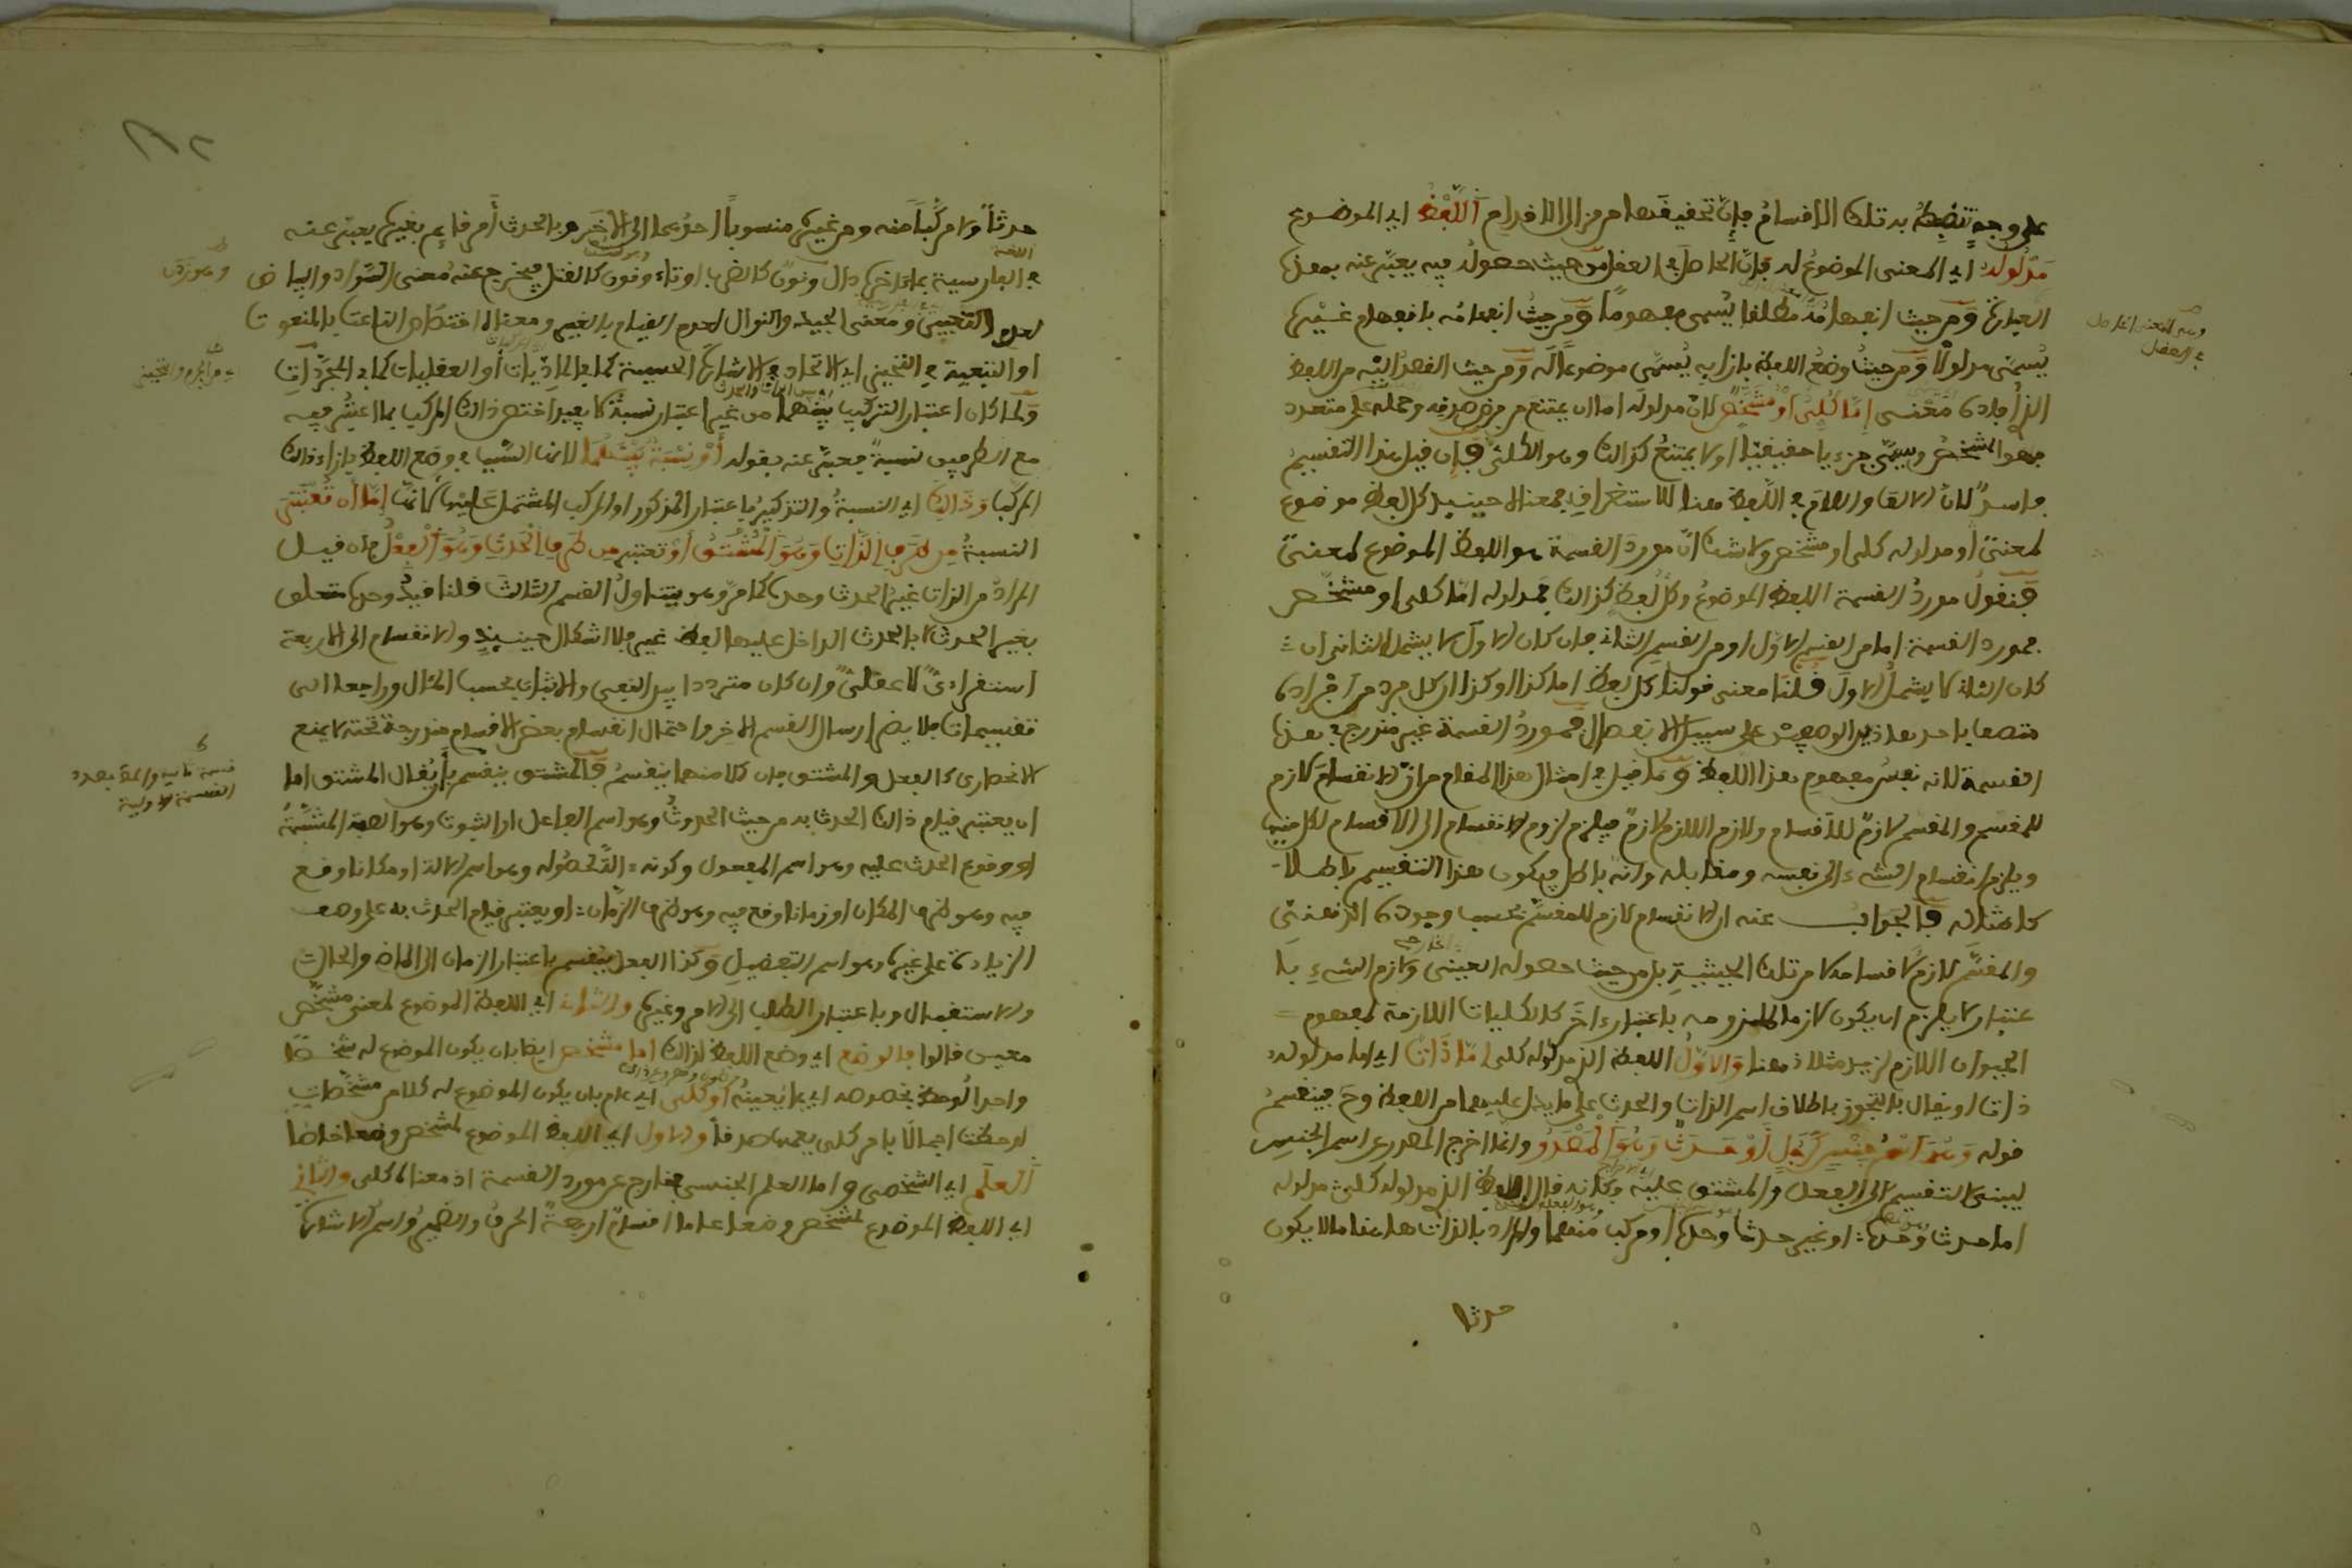 على وجه تنضبط به تلك الاقسام فان تحقيقها من مزال الاقدام اللفظ اي الموضوع
مدلوله اي المعنى الموضوع له فان الحاصل في العقل من حيث حصوله فيه يعبر عنه بهذه
العبارة ومن حيث انفهامه مطلقا يسمى مفهوما ومن حيث انفهامه بانفهام غيره
يسمى مدلولا ومن حيث وضع اللفظ بازايه يسمى موضوعا له ومن حيث القصد اليه من اللفظ
الذي افاده معنى اما كلي او مشخص لان مدلوله اما ان يمتنع من فرض صدقه وحمله على متعدد
فهو المشخص ويسمى جزءيا حقيقيا او لا يمتنع كذلك وهو الكلي فان قيل هذا التقسيم
فاسد لان الالف واللام في اللفظ هنا للاستغراق فمعناه حينيذ كل لفظ موضوع
لمعنى او مدلوله كلي او مشخص ولا شك ان مورد القسمة هو اللفظ الموضوع لمعنى
فنقول مورد القسمة اللفظ الموضوع وكل لفظ كذلك فمدلوله اما كلي او مشخص
فمورد القسمة اما من القسم الاول او من القسم الثاني فان كان الاول لا يشمل الثاني وان
كان الثاني لا يشمل الاول قلنا معنى قولنا كل لفظ اما كذا او كذا ان كل فرد من افراده
متصف باحد هاذين الوصفين على سبيل الانفصال فمورد القسمة غير مندرج في هذه
القسمة لانه نفس مفهوم هذا اللفظ وما قيل في امثال هذا المقام من ان الانقسام لازم
للمقسم والمقسم لازم للاقسام ولازم اللازم لازم فيلزم لزوم الانقسام الى الاقسام لكل منها
ويلزم انقسام الشيء الى نفسه ومقابله وانه باطل فيكون هذا التقسيم باطلا
كامثاله فالجواب عنه ان الانقسام لازم للمقسم بحسب وجوده الذهني
والمقسم لازم لاقسامه لا من تلك الحيثية بل من حيث حصوله العيني ولازم الشيء با
عتبار لا يلزم ان يكون لازما لملزومه باعتبار اخر كالكليات اللازمة لمفهوم
الحيوان اللازم لزيد مثلا ذهنا والاول اللفظ الذي مدلوله كلي اما ذات اي اما مدلوله
ذات او يقال بالتجوز باطلاق اسم الذات والحدث على ما يدل عليهما من اللفظ وح فينقسم
قوله وهو اسم جنس كرجل او حدث وهو المصدر وانما اخرج المصدر عن اسم الجنس
ليبني التقسيم الى الفعل والمشتق عليه وكانه قال اللفظ الذي مدلوله كلي مدلوله
اما حدث وحده او غير حدث وحده او مركب منهما والمراد بالذات هاهنا ما لا يكون
حدثا
وهو المعنى الحاصل
في العقل
حدثا ولا مركبا منه ومن غيره منسوبا احدهما الى الاخر وبالحدث امر قايم بغيره يعبر عنه
في الفارسية بما اخره دال ونون كالضرب او تاء ونون كالقتل فيخرج عنه معنى السواد والبياض
لعدم التعبير ومعنى الجيد والنوال لعدم القيام بالغير ومعناه اختصاص الناعت بالمنعوت
او التبعية في التحيز اي الاتحاد في الاشارة الحسية كما في الماديات او العقليات كما في المجردات
ولما كان اعتبار التركيب بينهما من غير اعتبار نسبة لا يفيد اختص ذلك المركب بما اعتبر فيه
مع الطرفين نسبة فعبر عنه بقوله او نسبة بينهما لانها السبب في وضع اللفظ بازاء ذلك
المركب وذلك اي النسبة والتذكير باعتبار المذكور او المركب المشتمل عليها لانها اما ان تعتبر
النسبة من طرف الذات وهو المشتق او تعتبر من طرف الحدث وهو الفعل فان قيل
المراد من الذات غير الحدث وحده كما مر وهو يتناول القسم الثالث قلنا قيد وحده متعلق
بغير الحدث لا بالحدث الداخل عليه لفظ غير فلا اشكال حينيذ والانقسام الى الاربعة
استقرادي لا عقلي وان كان مترددا بين النفي والاثبات بحسب المئال وراجعا الى
تقسيمات فلا يضر ارسال القسم الاخر واحتمال انقسام بعض الاقسام مندرجة تحته لا يمنع
الانحصار كالفعل والمشتق فان كلا منهما ينقسم فالمشتق ينقسم بان يقال المشتق اما
ان يعتبر قيام ذلك الحدث به من حيث الحدوث وهو اسم الفاعل او الثبوت وهو الصفة المشبهة
او وقوع الحدث عليه وهو اسم المفعول وكونه الة لحصوله وهو اسم الالة او مكانا وقع
فيه وهو ظرف المكان او زمانا وقع فيه وهو ظرف الزمان او يعتبر قيام الحدث به على وصف
الزيادة على غيره وهو اسم التفضيل وكذا الفعل ينقسم باعتبار الزمان الى الماضي والحال
والاستقبال وباعتبار الطلب الى الامر وغيره والثاني اي اللفظ الموضوع لمعنى مشخص
معين قالوا فالوضع اي وضع اللفظ لذلك اما مشخص ايضا بان يكون الموضوع له مشخصا
واحدا لوحظ بخصوصه اي بما يعينه او كلي اي عام بان يكون الموضوع له كلا من مشخصات
لوحظت اجمالا بامر كلي يعمها صدقا والاول اي اللفظ الموضوع لمشخص وضعا خاصا
العلم اي الشخصي واما العلم الجنسي فخارج عن مورد القسمة اذ معناه كلي والثاني
اي اللفظ الموضوع لمشخص وضعا عاما اقسام اربعة الحرف والضمير واسم الاشارة
قسمة ثانية والمقصود
القسمة الاولية